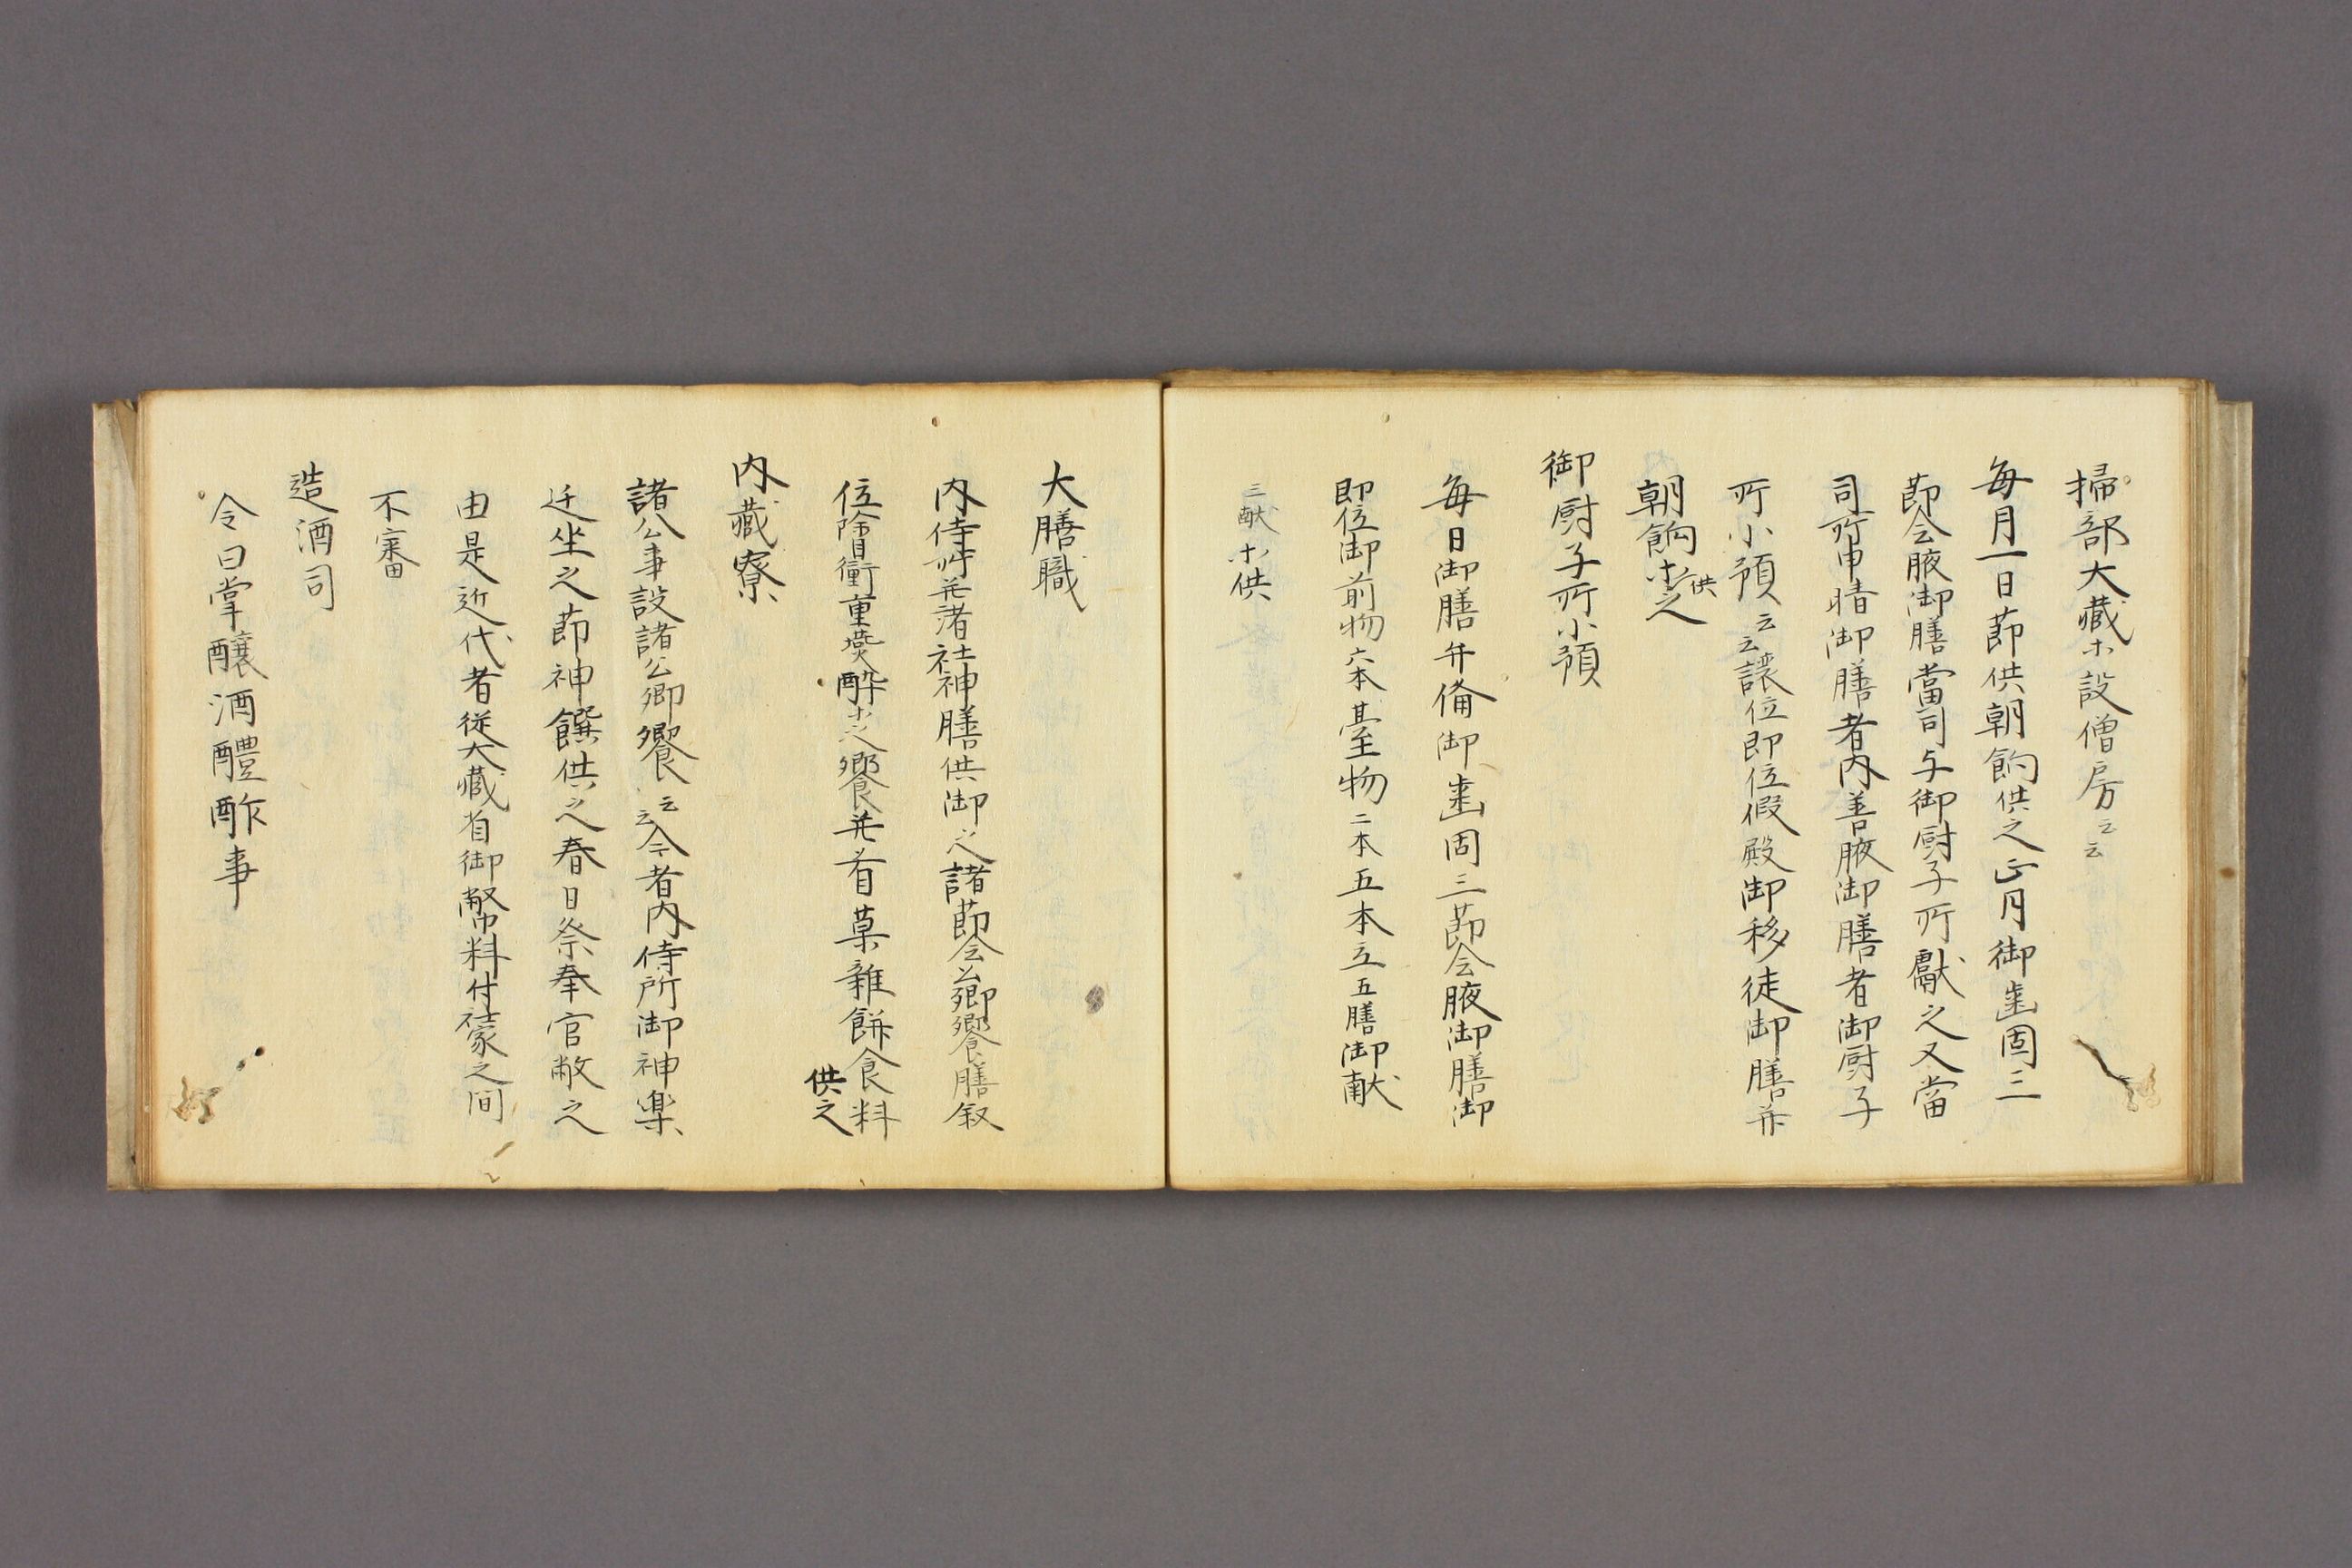 掃部大蔵ホ設僧房云云
毎月一日節供朝餉供之正月御歯固三
節会腋御膳當司与御厨子所獻之又當
司所申晴御膳者内善腋御膳者御厨子
所小預云云譲位即位假殿御移徒御膳并
朝餉ホ供之
御厨子所小預
毎日御膳并俻御歯固三節会腋御膳御
即位御前物六本臺物二本五本立五膳御献
三献ホ供
大膳職
内侍所并諸社神膳供御之諸節会公卿饗膳叙
位除目衝重𤏐酔ホ之饗并肴菓雑餅食料
供之
内藏寮
諸公事設諸公卿饗云云今者内侍所御神楽
迁坐之節神饌供之春日祭奉官敝之
由是近代者従大蔵省御幣料付社家之間
不審
造酒司
令曰掌醸酒醴酢事